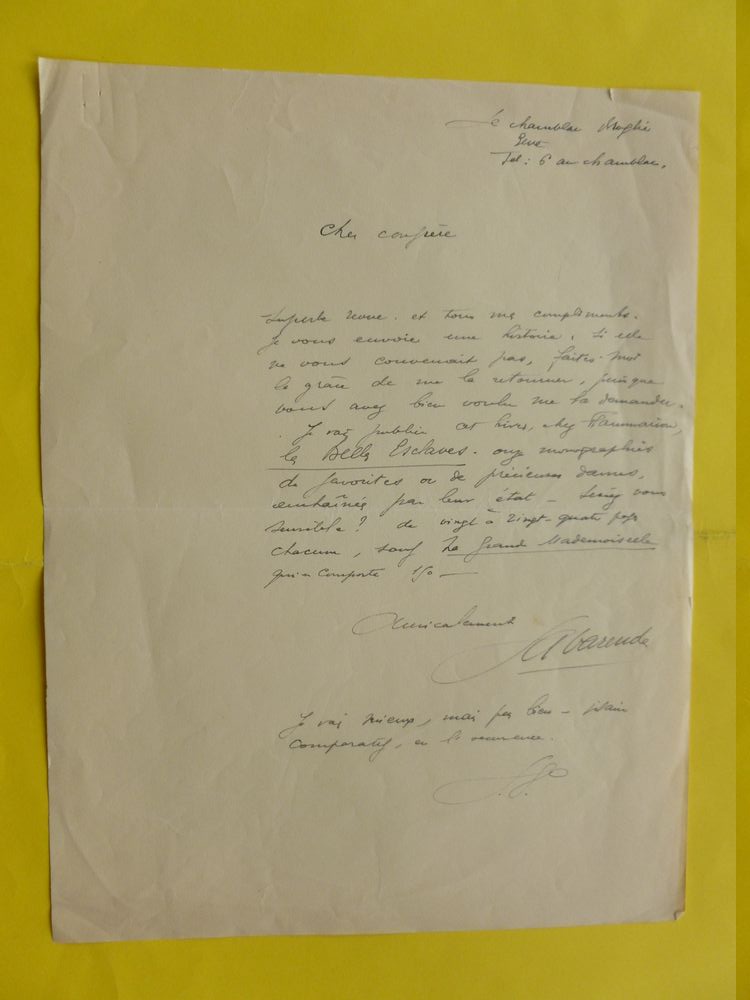 Le Chamblac Broglie
Eure
Tel : 6 au Chamblac.
Cher confrère
Superbe revue. et tous mes compliments.
Je vous envoie une histoire. Si elle
ne vous convenait pas, faites-moi
la grâce de me la retourner, puisque
vous avez bien voulu me la demander.
Je vais publier cet hiver, chez Flammarion,
les Belles Esclaves. onze monographies
de favorites ou de précieuses dames,
enchaînées par leur état - Seriez vous
sensible ? de vingt à vingt-quatre pages
chacune, sauf La Grande Mademoiselle
qui en comporte 150 -
Amicalement
La Varende
Je vais mieux, mais pas bien - vilain
comparatif, en l'occurrence.